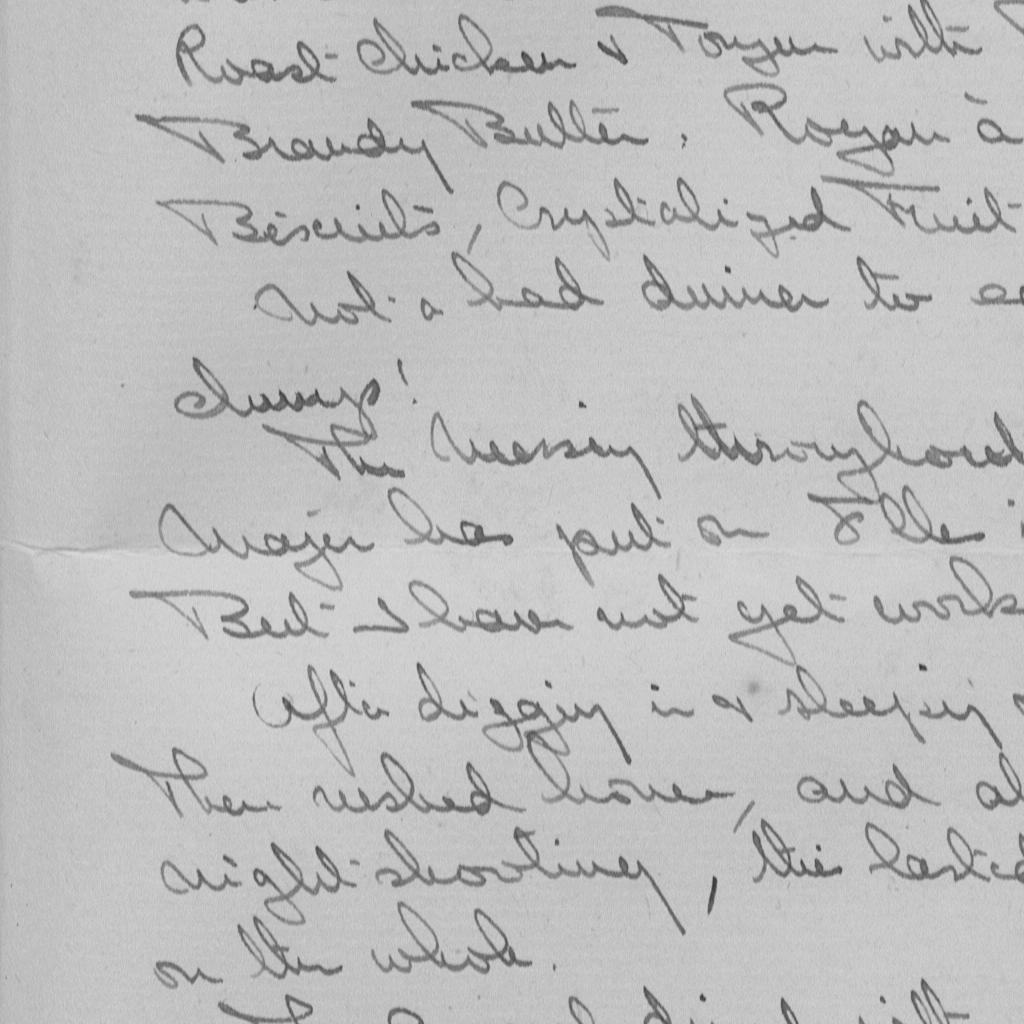 Roast Chicken & Tongue with
Brandy Butter. Royan à
Biscuits, Crystalized Fruit
Not a bad dinner to
chumps!
The Messing throughout
Major has put on
But I have not yet
After digging in & sleeping
Then rushed home, and
night shooting, this lasted
on the whole.